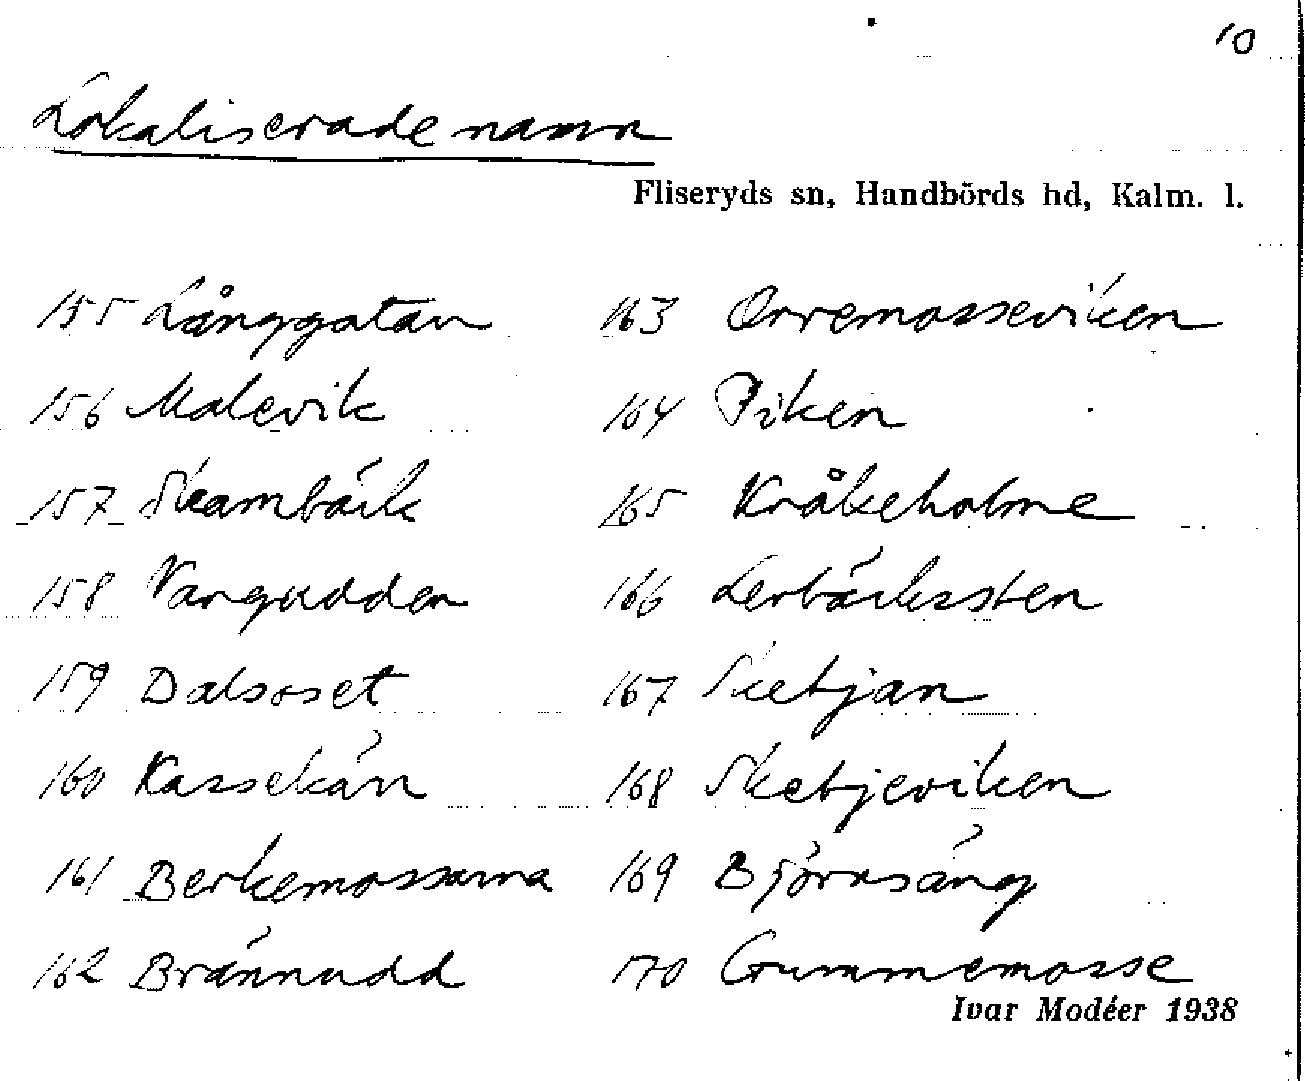 10
Lokaliserade namn
Fliseryds sn, Handbörds hd, Kalm. l.
155 Långgatan
156 Malevik
157 Skambäck
158 Vargudden
159 Dalsoset
160 Kassekärr
161 Berkemossarna
162 Brännudd
163 Orremosseviken
164 Piken
165 Kråkeholme
166 Lerbäckssten
167 Sketjan
168 Sketjeviken
169 Björnsäng
170 Gummemosse
Ivar Modéer 1938